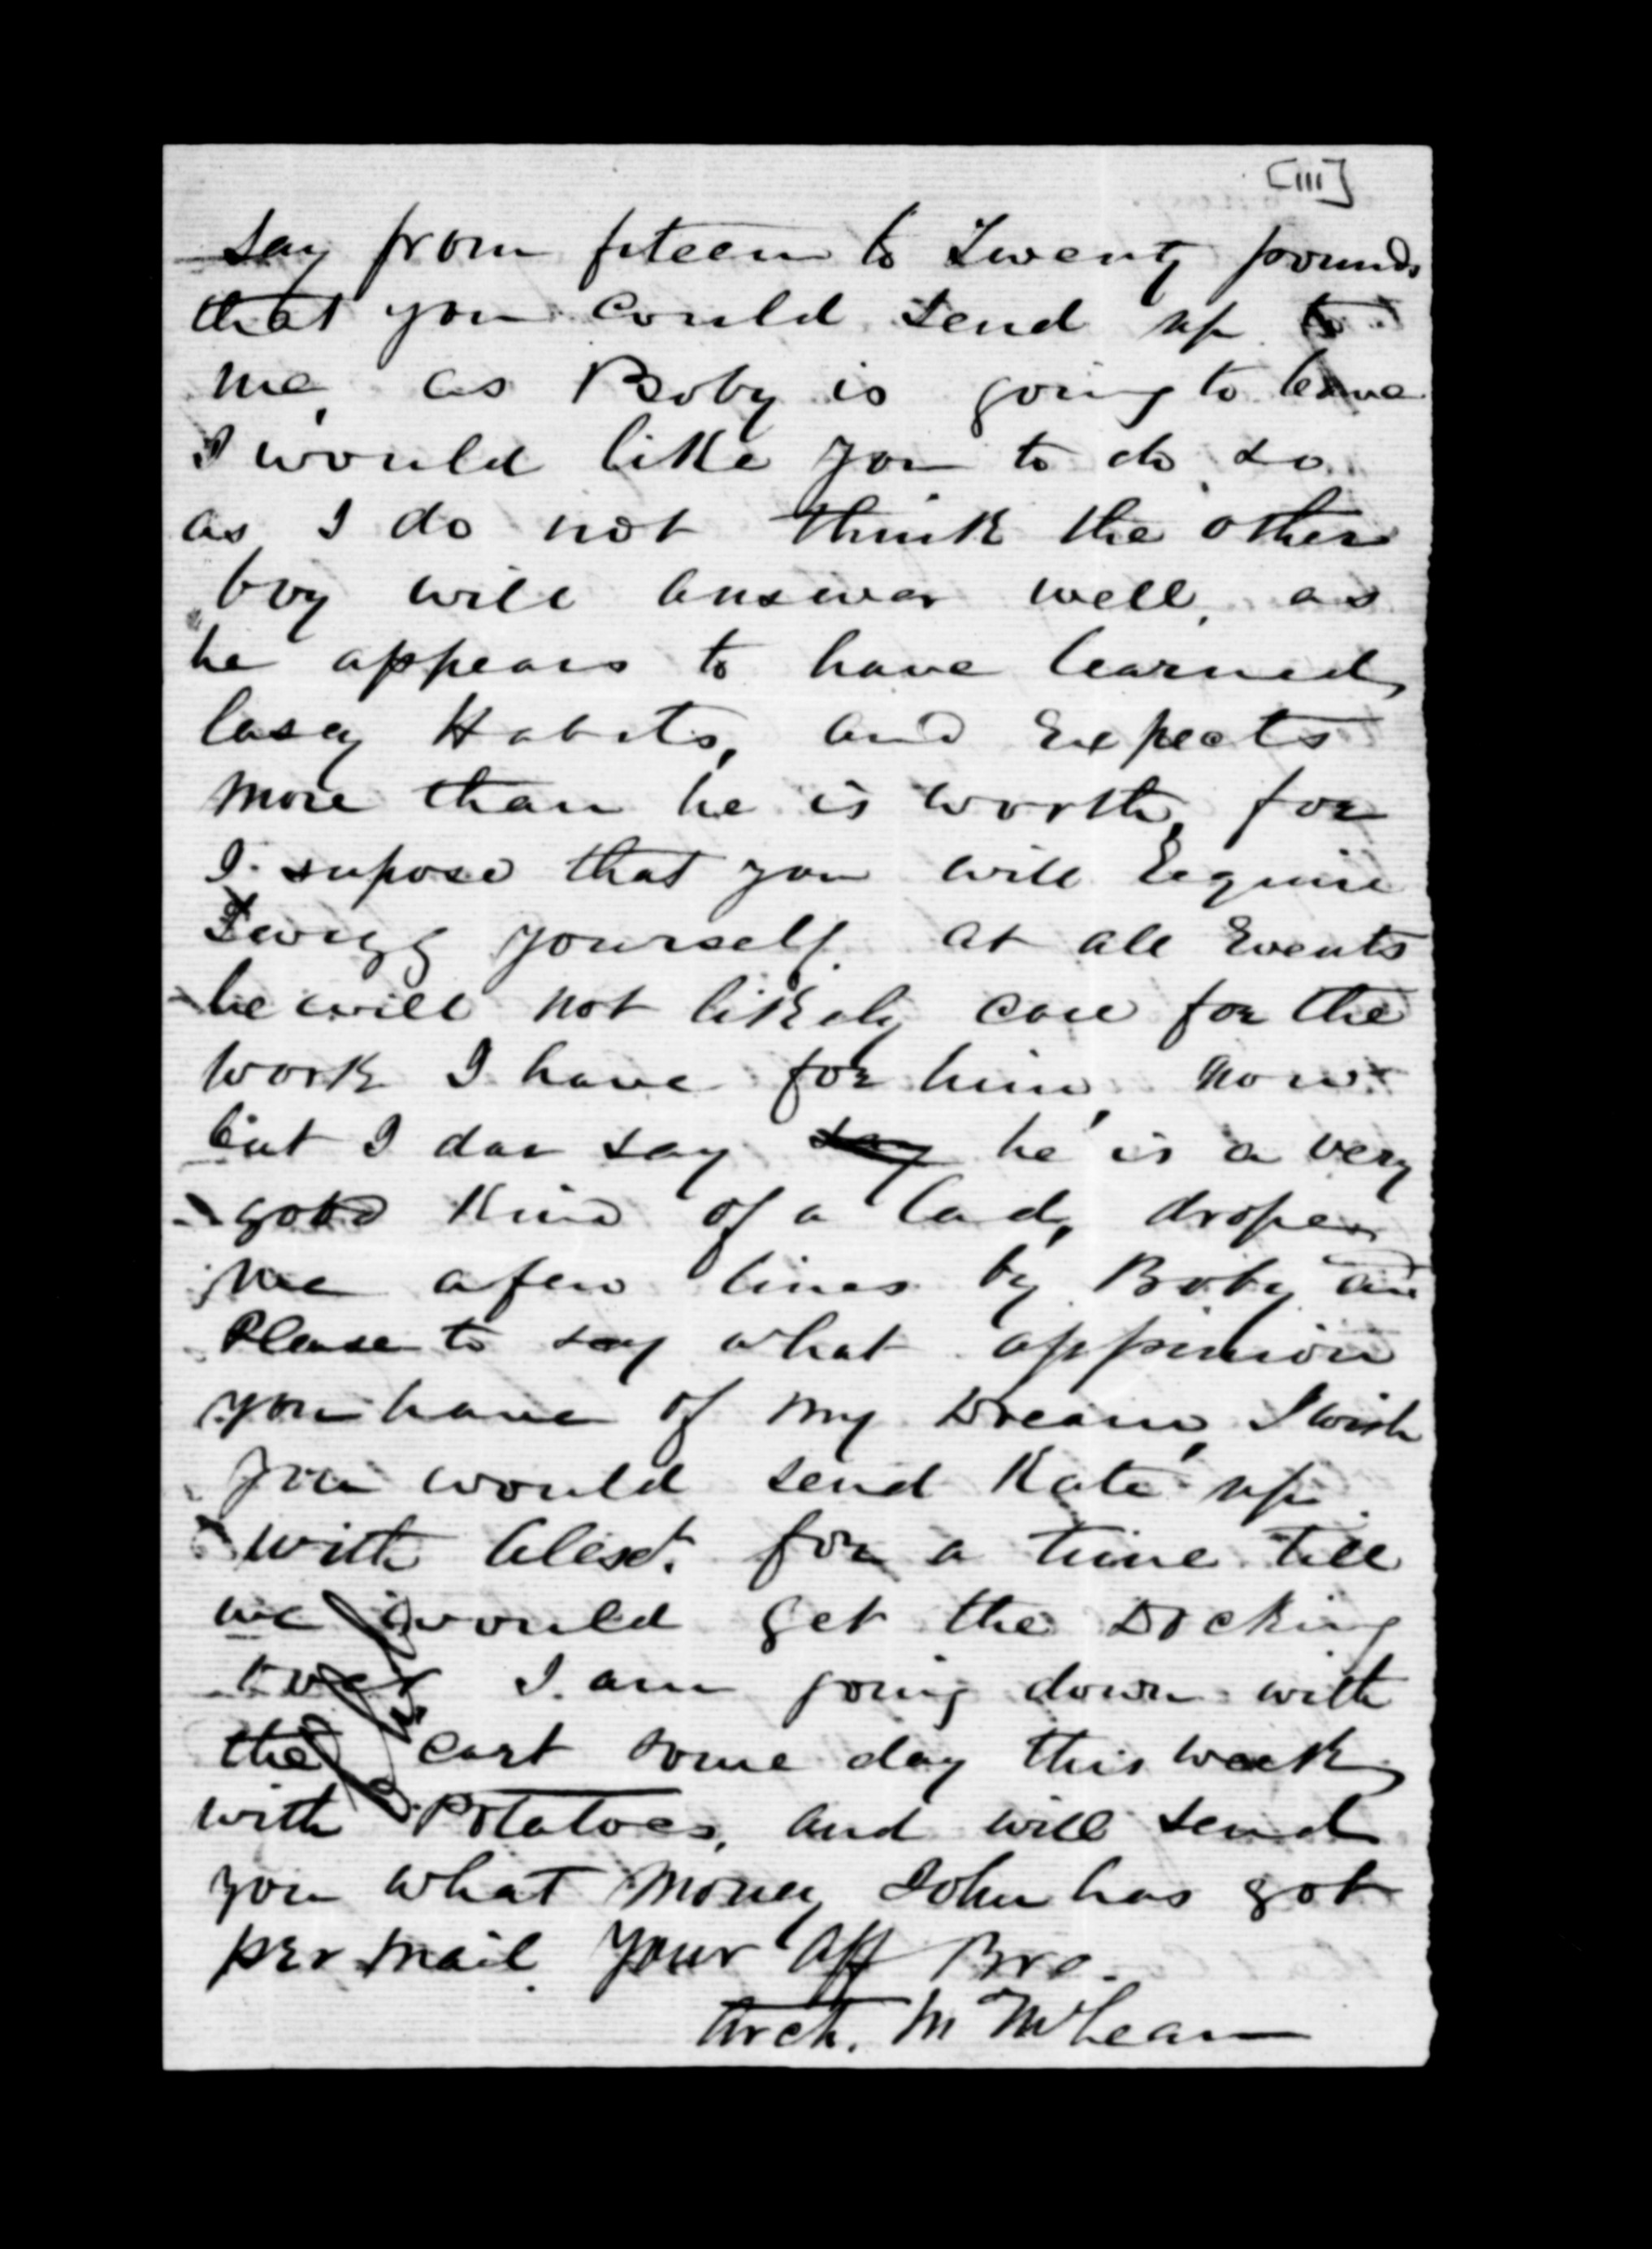 [iii]
say from fiteen to Twenty pounds
that you could send up to
me, as Boby is going to leave
I would like you to do so
as I do not think the other
boy will answer well, as
he appears to have learned,
lasey Habits, and Expects
more than he is worth, for
I supose that you will Equire
Twigg yourself. at all Events
he will not likely care for the
work I have for him, now
but I dar say say he is a very
good Kind of a lad, drope
me a few lines by Boby and
Please to say what oppinion
you have of my Dream, I wish
you would send Kate up
with Alext. for a time till
we would get the Docking
over I am going down with
the cart some day this week,
with Potatoes, and will send
you what money John has got
per mail. Your Aff Bro.
Arch. M McLean